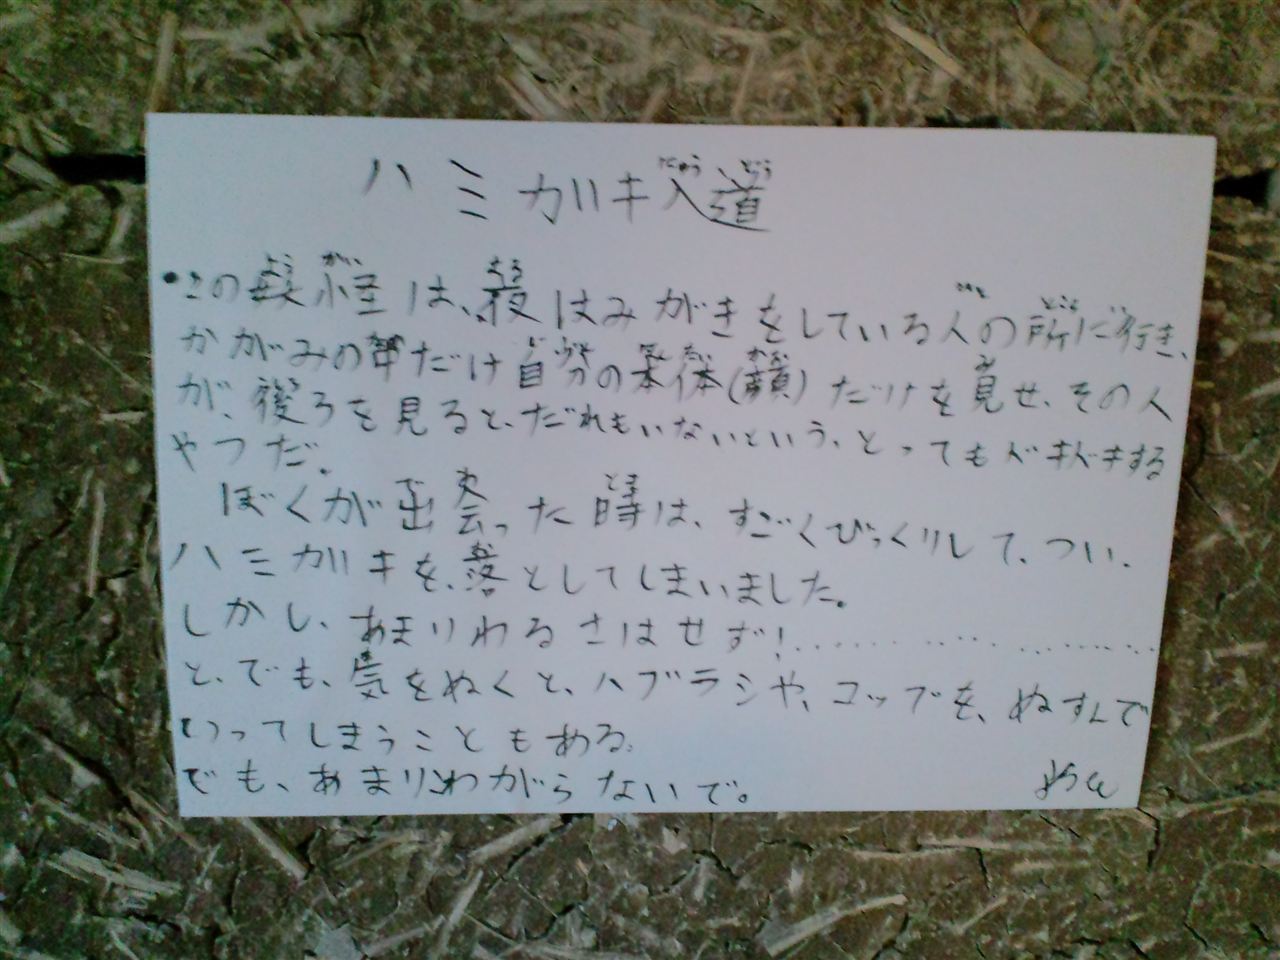 ハミガキ入道
・この妖怪は、夜はみがきをしている人の所に行き、
かがみの中だけ自分の本体(顔)だけを見せ、その人
が、後ろを見ると、だれもいないという、とってもドキドキする
やつだ。
ぼくが出会った時は、すごくびっくりして、つい、
ハミガキを、落としてしまいました。
しかし、あまりわるさはせず!……………………
と、でも、気をぬくと、ハブラシや、コップを、ぬすんで
いってしまうこともある。
でも、あまりこわがらないで。